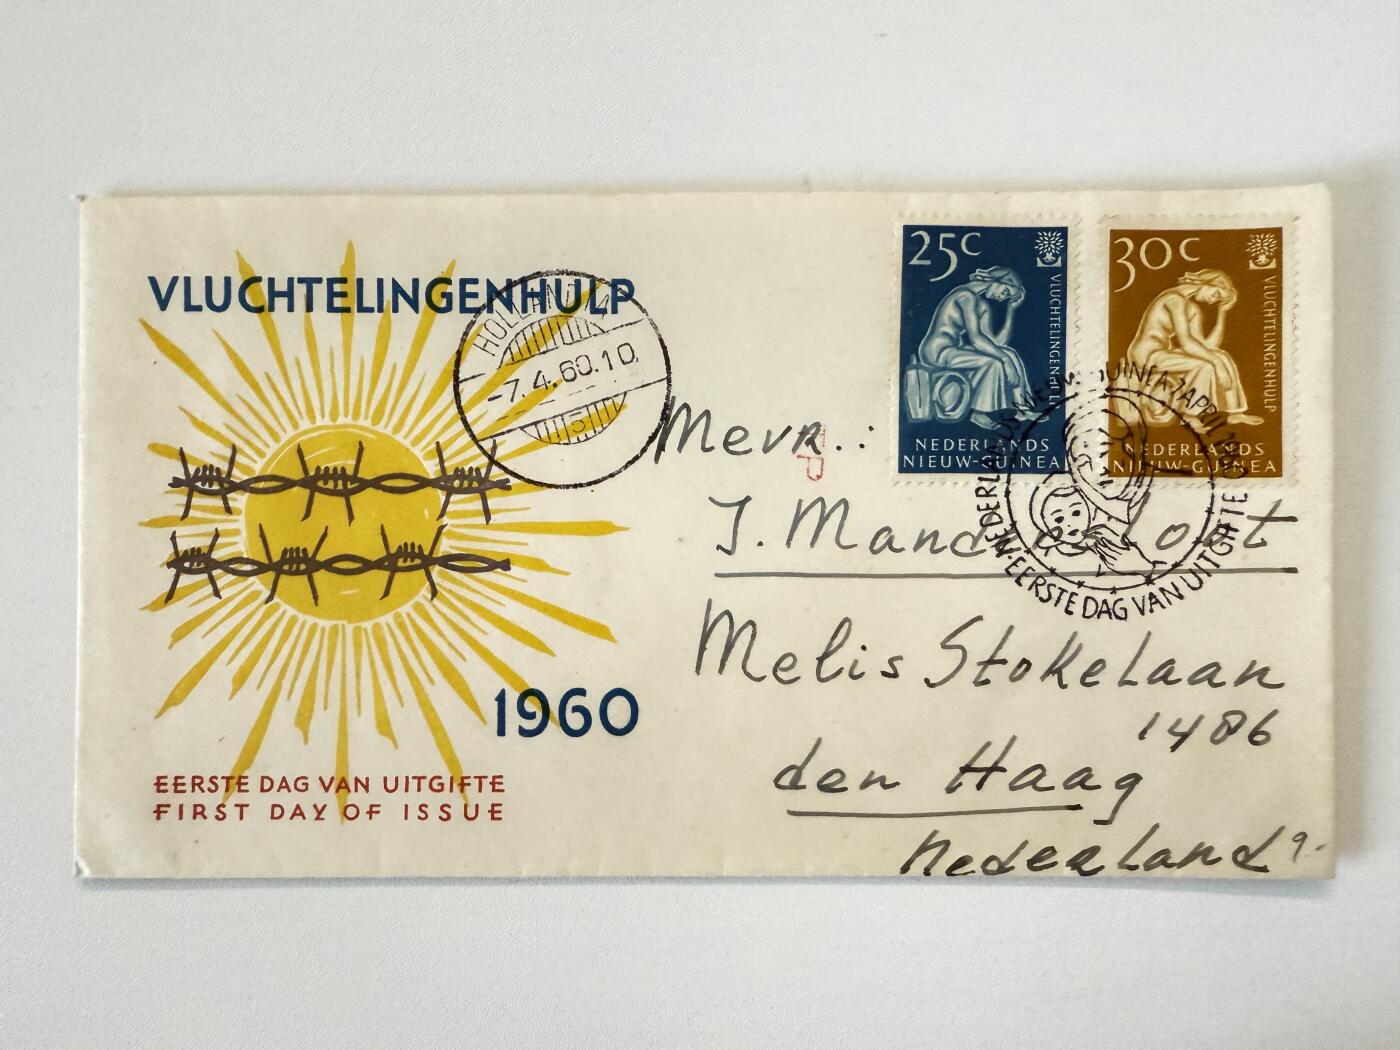 VLUCHTELINGENHULP
1960
EERSTE DAG VAN UITGIFTE
FIRST DAY OF ISSUE
-7.4.60.10
5
25c
VLUCHTELINGENHULP
NEDERLANDS
NIEUW-GUINEA
30c
VLUCHTELINGENHULP
NEDERLANDS
NIEUW-GUINEA
EERSTE DAG VAN UITGIFTE
Mevr.:
Melis Stokelaan
1486
den Haag
Nederland
9.-